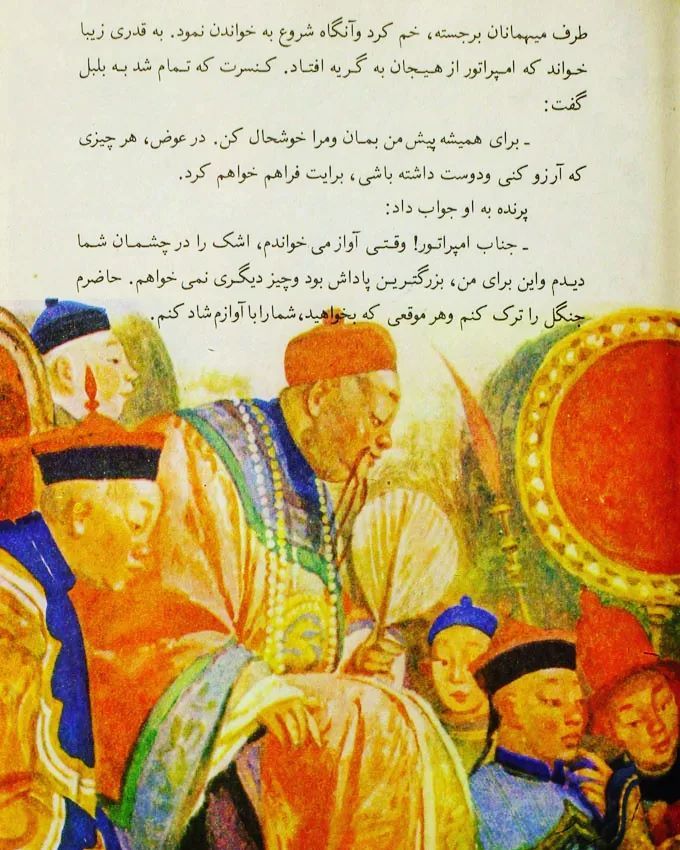 طرف میهمانان برجسته، خم کرد وآنگاه شروع به خواندن نمود. به قدری زیبا
خواند که امپراتور از هیجان به گریه افتاد. کنسرت که تمام شد به بلبل
گفت:
ـ برای همیشه پیش من بمان ومرا خوشحال کن. در عوض، هر چیزی
که آرزو کنی ودوست داشته باشی، برایت فراهم خواهم کرد.
پرنده به او جواب داد:
ـ جناب امپراتور! وقتی آواز می خواندم، اشک را در چشمان شما
دیدم واین برای من، بزرگترین پاداش بود وچیز دیگری نمی خواهم. حاضرم
جنگل را ترک کنم وهر موقعی که بخواهید، شما را با آوازم شاد کنم.